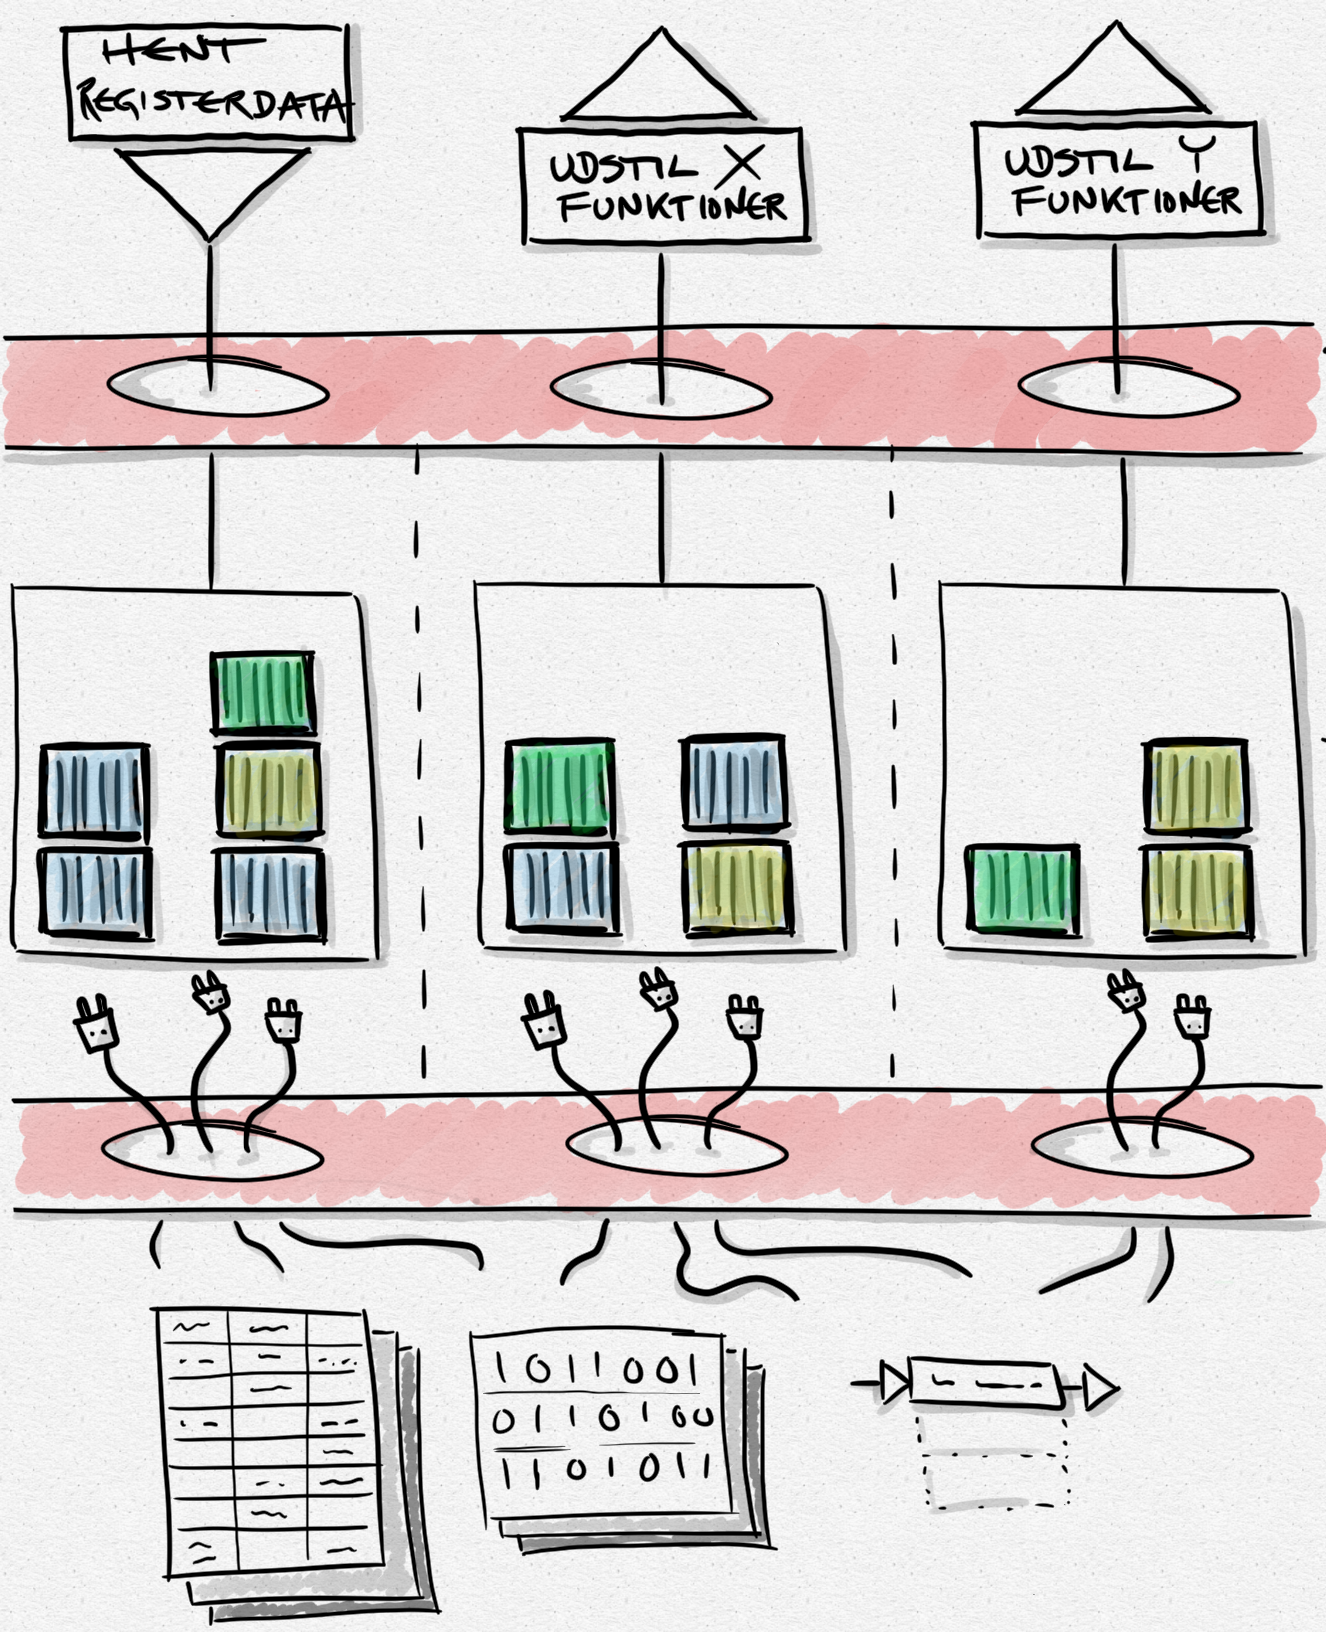 HENT
REGISTERDATA
UDSTIL X
FUNKTIONER
UDSTIL Y
FUNKTIONER
1011001
0110100
1101011